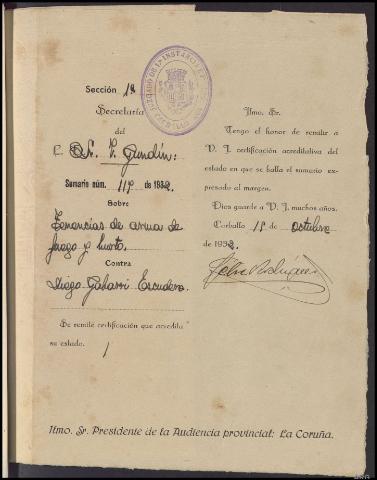 Sección 1ª
Secretario
del
Sr. V. Gundín:
Sumario núm. 119 de 1932.
Sobre
Tenencias de arma de
fuego y hurto.
Contra
Diego Gabarri Escudero
Se remite certificación que acredita
su estado.
JUZGADO DE 1ª INSTANCIA
Iltmo. Sr.
Tengo el honor de remitir a
V. I. certificación acreditativa del
estado en que se halla el sumario ex-
presado al margen.
Dios guarde a V. I. muchos años.
Carballo 18 de octubre
de 1932.
Iltmo. Sr. Presidente de la Audiencia provincial: La Coruña.